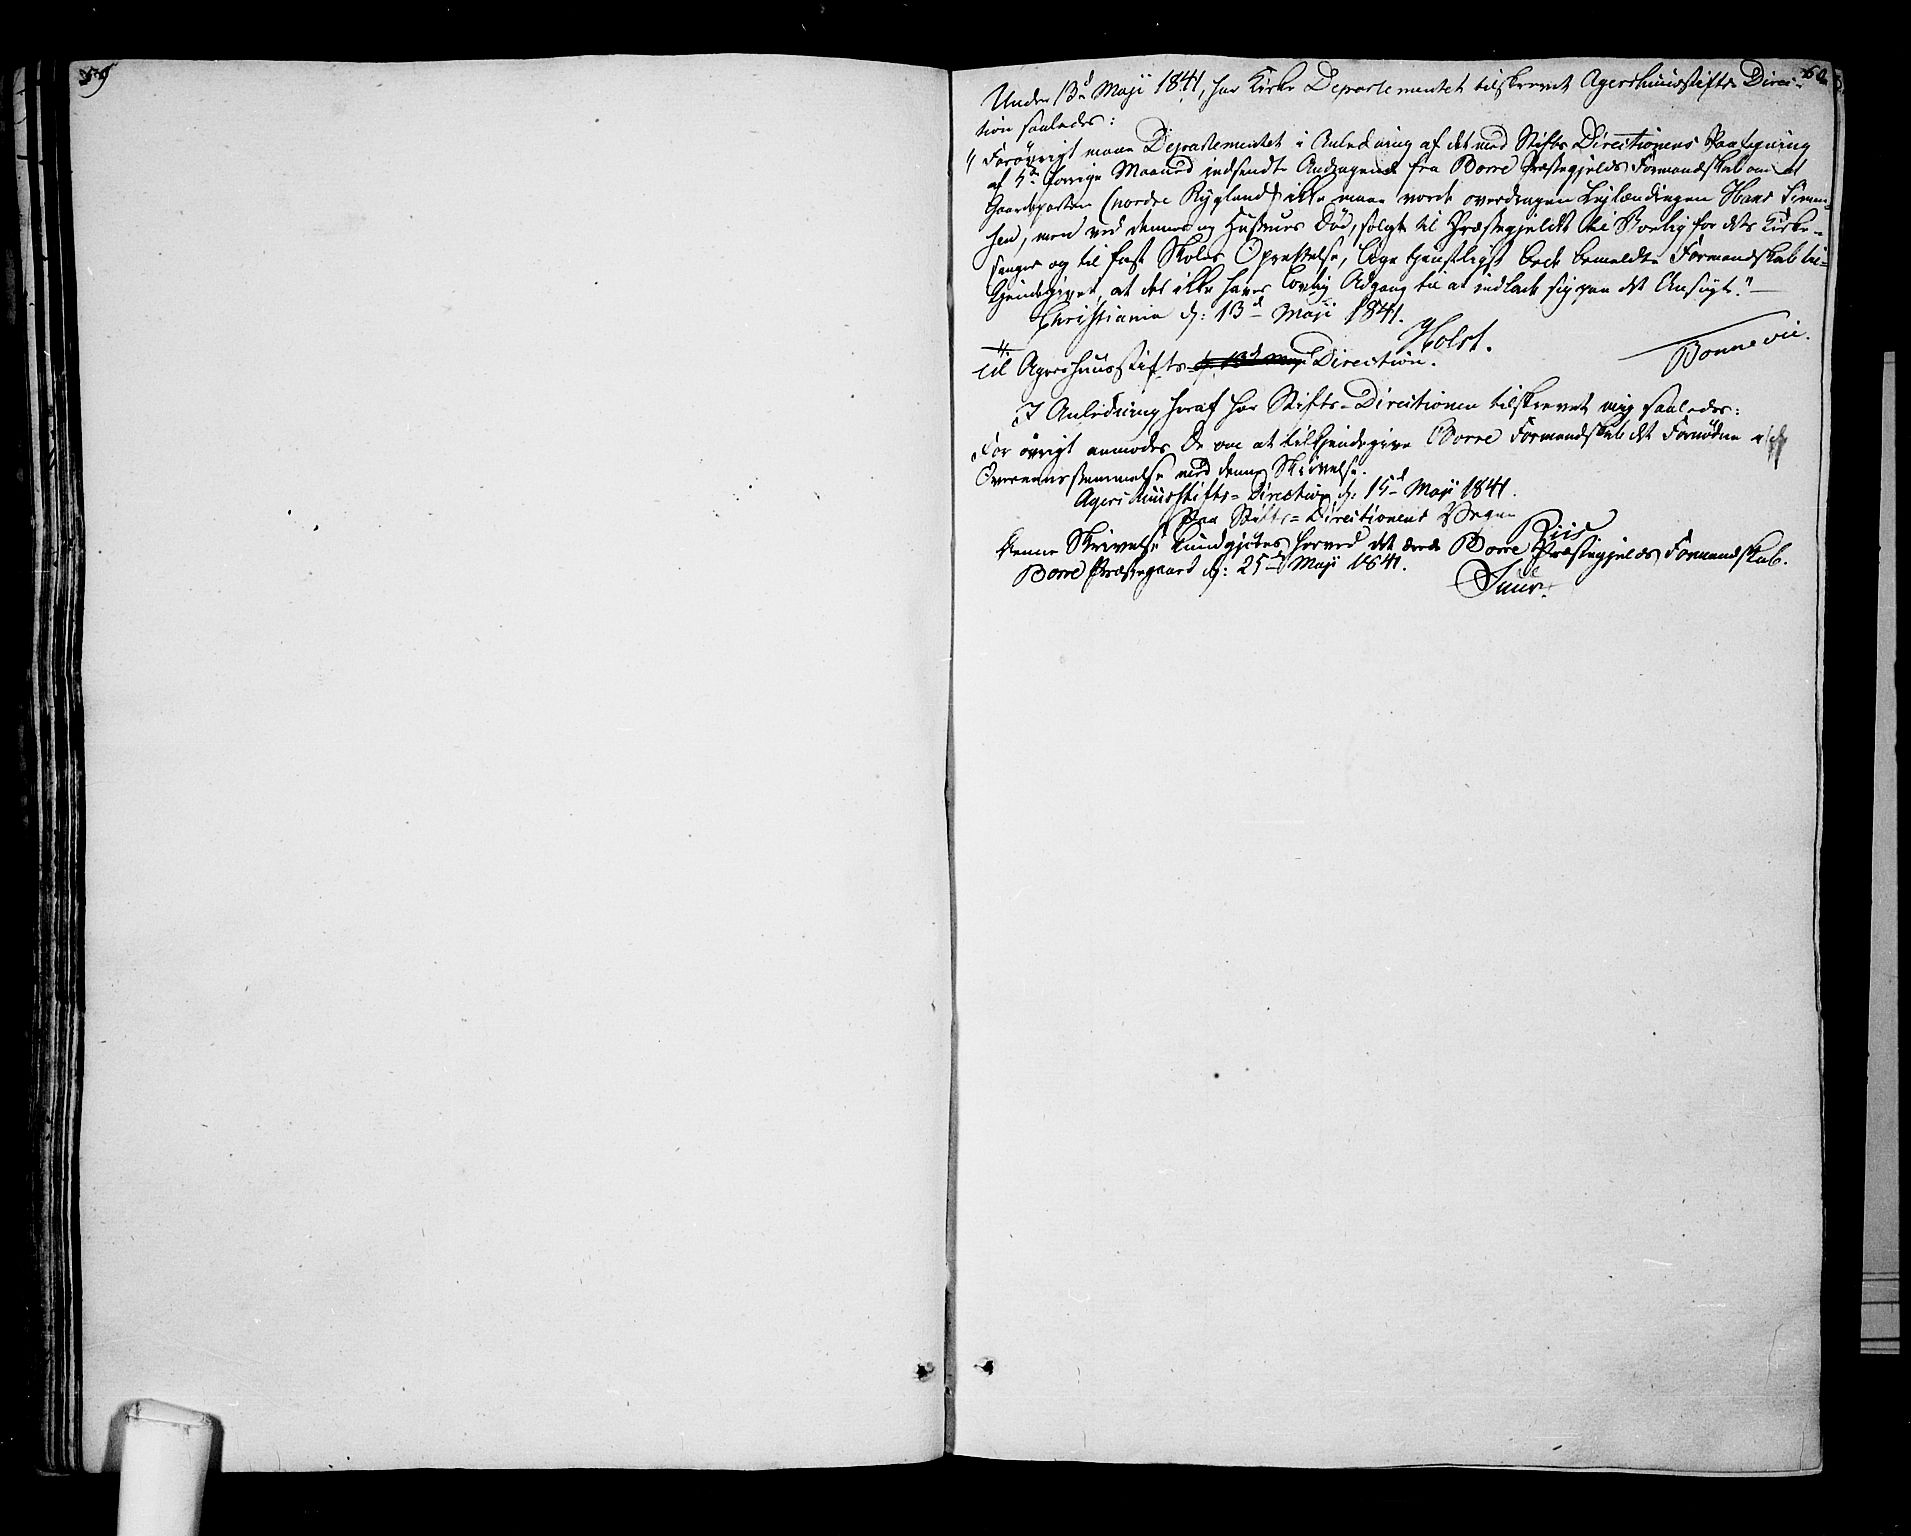 59
60
Under 13d Maji 1841, har Kirke Departementet tilskrevet Agershuusstifts Direc-
tion saaledes:
"Forövrigt maae Departementet i Anledning af det med Stifts Directionens Paategning
af 5te forrige Maaned indsendte Andragende fra Borre Præstegjelds Formandskab om at
Gaardparten (nordre Rygland) ikke maae vorde overdragen Leylændingen Hans Simen-
sen, men ved dennes og Hustrues Död, solgt til Præstegjeldet til Bolig for dets Kirke-
sanger og til fast Skoles Oprettelse, lige tjenstligst bede bemeldte Formandskab til-
kjendegivet, at det ikke haves lovlig Adgang til at indlade sig paa det Ansögte."
Christiania d: 13d Maji 1841.
Holst.
Bonnevie.
Til Agershuusstifts d. 13d Maji Direction.
I Anledning heraf har Stifts-Directionen tilskrevet mig saaledes:
For övrigt anmodes De om at tilkjendegive Borre Formandskab det Fornödne i
Overeensstemmelse med denne Skrivelse.
Agershuusstifts-Direction d: 15d Maji 1841.
Paa Stifts-Directionens Vegne
Riis
Denne Skrivelse kundgjöres herved det ærede Borre Præstegjelds Formandskab.
Borre Præstegaard d: 25d Maji 1841.